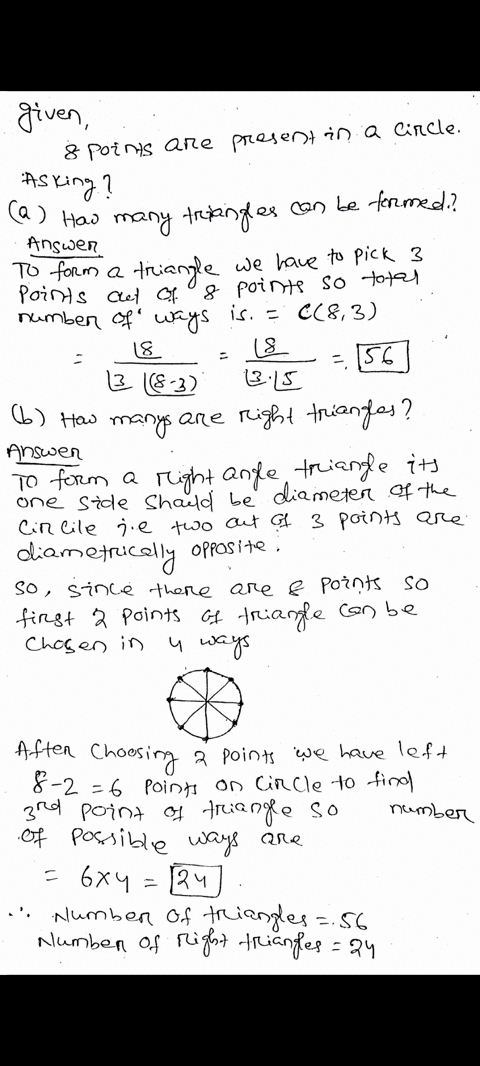 given,
8 points are present in a circle.
Asking?
(a) How many triangles can be formed?
Answer
To form a triangle we have to pick 3
Points out of 8 points so total
number of ways is. = C(8,3)
= |8 / |3 |(8-3) = |8 / |3.|5 = 56
(b) How manys are right triangles?
Answer
To form a right angle triangle its
one side should be diameter of the
Circile i.e two out of 3 points are
diametrically opposite.
So, since there are 8 points so
first 2 points of triangle can be
chosen in 4 ways
After choosing 2 points we have left
8-2=6 points on circle to find
3rd point of triangle so number
of possible ways are
= 6x4 = 24
∴ Number of triangles = 56
Number of right triangles = 24